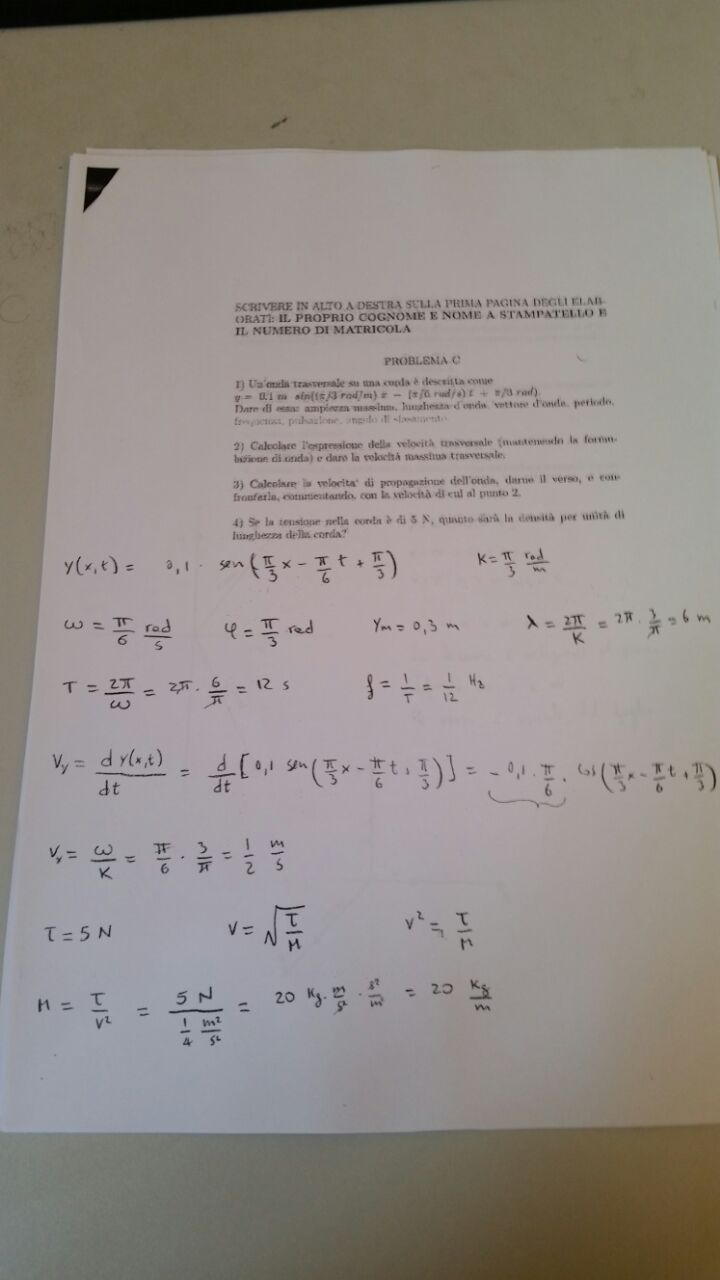 SCRIVERE IN ALTO A DESTRA SULLA PRIMA PAGINA DEGLI ELAB-
ORATI: IL PROPRIO COGNOME E NOME A STAMPATELLO E
IL NUMERO DI MATRICOLA
PROBLEMA C
1) Un'onda trasversale su una corda è descritta come
y = 0.1 m sin((π/3 rad/m) x − (π/6 rad/s) t + π/3 rad).
Dare di essa: ampiezza massima, lunghezza d'onda, vettore d'onda, periodo,
frequenza, pulsazione, angolo di sfasamento.
2) Calcolare l'espressione della velocità trasversale (mantenendo la formu-
lazione di onda) e dare la velocità massima trasversale.
3) Calcolare la velocita' di propagazione dell'onda, darne il verso, e con-
frontarla, commentando, con la velocità di cui al punto 2.
4) Se la tensione nella corda è di 5 N, quanto sarà la densità per unità di
lunghezza della corda?
Y(x,t) = 0,1 · sen(π/3 x − π/6 t + π/3) K = π/3 rad/m
ω = π/6 rad/s φ = π/3 rad Ym = 0,3 m λ = 2π/K = 2π · 3/π = 6 m
T = 2π/ω = 2π · 6/π = 12 s f = 1/T = 1/12 Hz
Vy = d Y(x,t)/dt = d/dt [0,1 sen(π/3 x − π/6 t + π/3)] = − 0,1 · π/6 · cos(π/3 x − π/6 t + π/3)
Vx = ω/K = π/6 · 3/π = 1/2 m/s
τ = 5 N V = √(τ/M) V² = τ/M
M = τ/V² = 5 N / (1/4 m²/s²) = 20 Kg · m/s² · s²/m² = 20 Kg/m